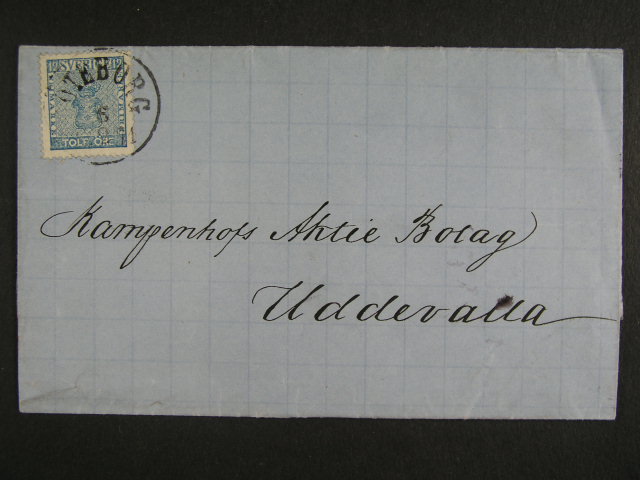 12 SVERIGE 12
TOLF ÖRE
OTEBORG
6
Kampenhofs Aktie Bolag
Uddevalla